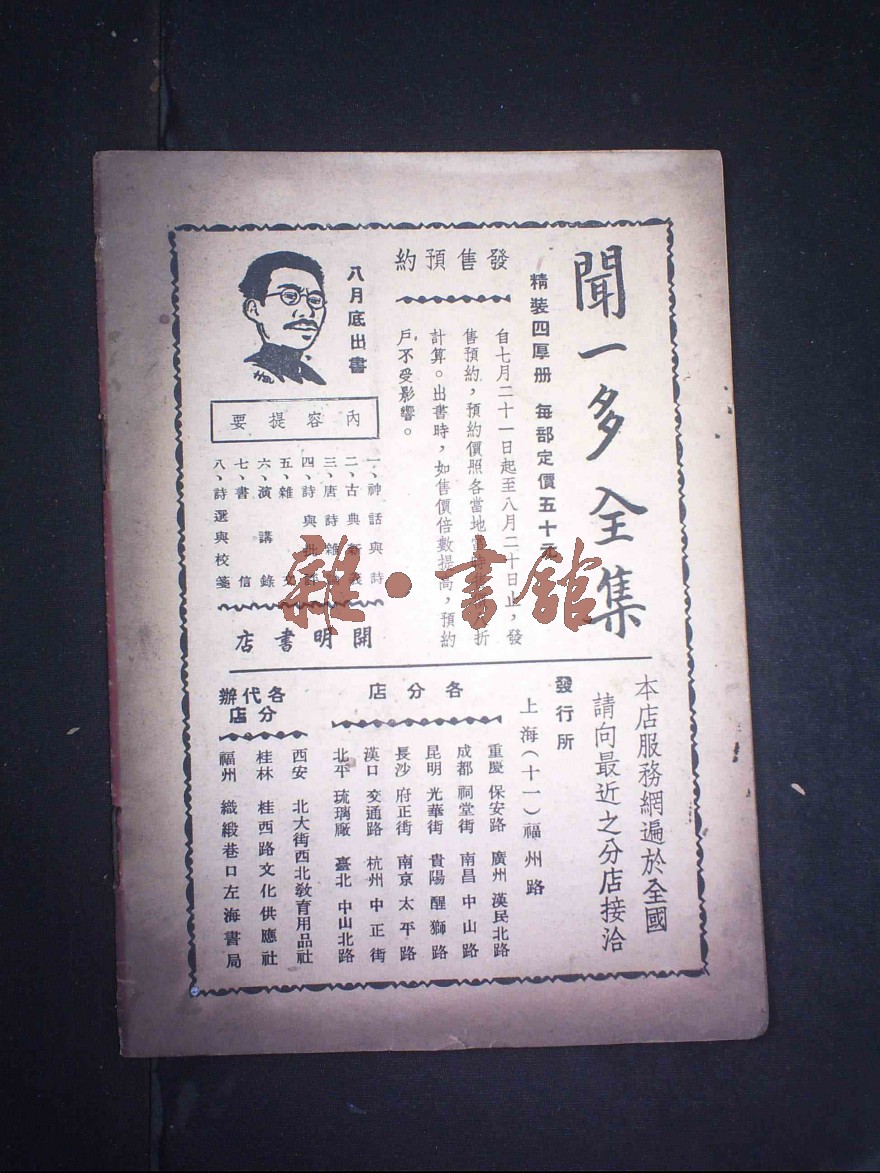 聞一多全集
精裝四厚册 每部定價五十元
發售預約
自七月二十一日起至八月二十日止，發
售預約，預約價照各當地 八折
計算。出書時，如售價倍數提高，預約
戶不受影響。
八月底出書
內容提要
一、神話與詩
二、古典新義
三、唐詩雜
四、詩與批評
五、雜文
六、演講錄
七、書信
八、詩選與校箋
開明書店
雜·書館
本店服務網遍於全國
請向最近之分店接洽
發行所
上海（十一）福州路
各分店
重慶 保安路 廣州 漢民北路
成都 祠堂街 南昌 中山路
昆明 光華街 貴陽 醒獅路
長沙 府正街 南京 太平路
漢口 交通路 杭州 中正街
北平 琉璃廠 臺北 中山北路
各代辦
分店
西安 北大街西北教育用品社
桂林 桂西路文化供應社
福州 織緞巷口左海書局